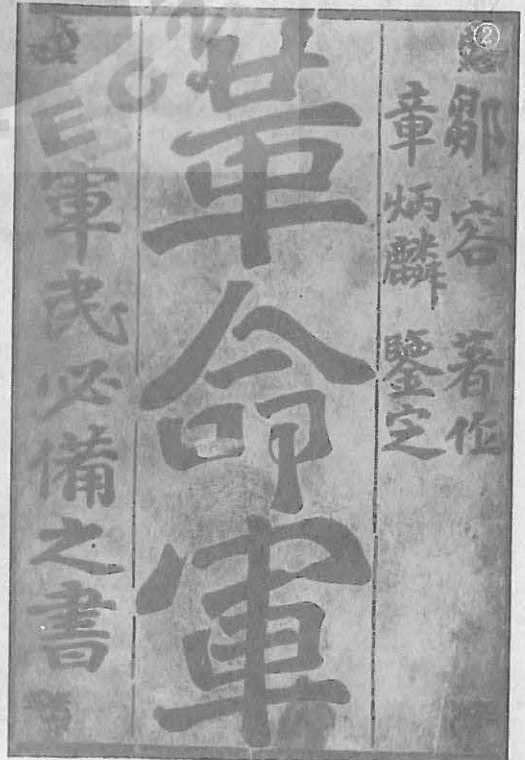 ②
鄒容 著作
章炳麟 鑒定
革命軍
軍民必備之書